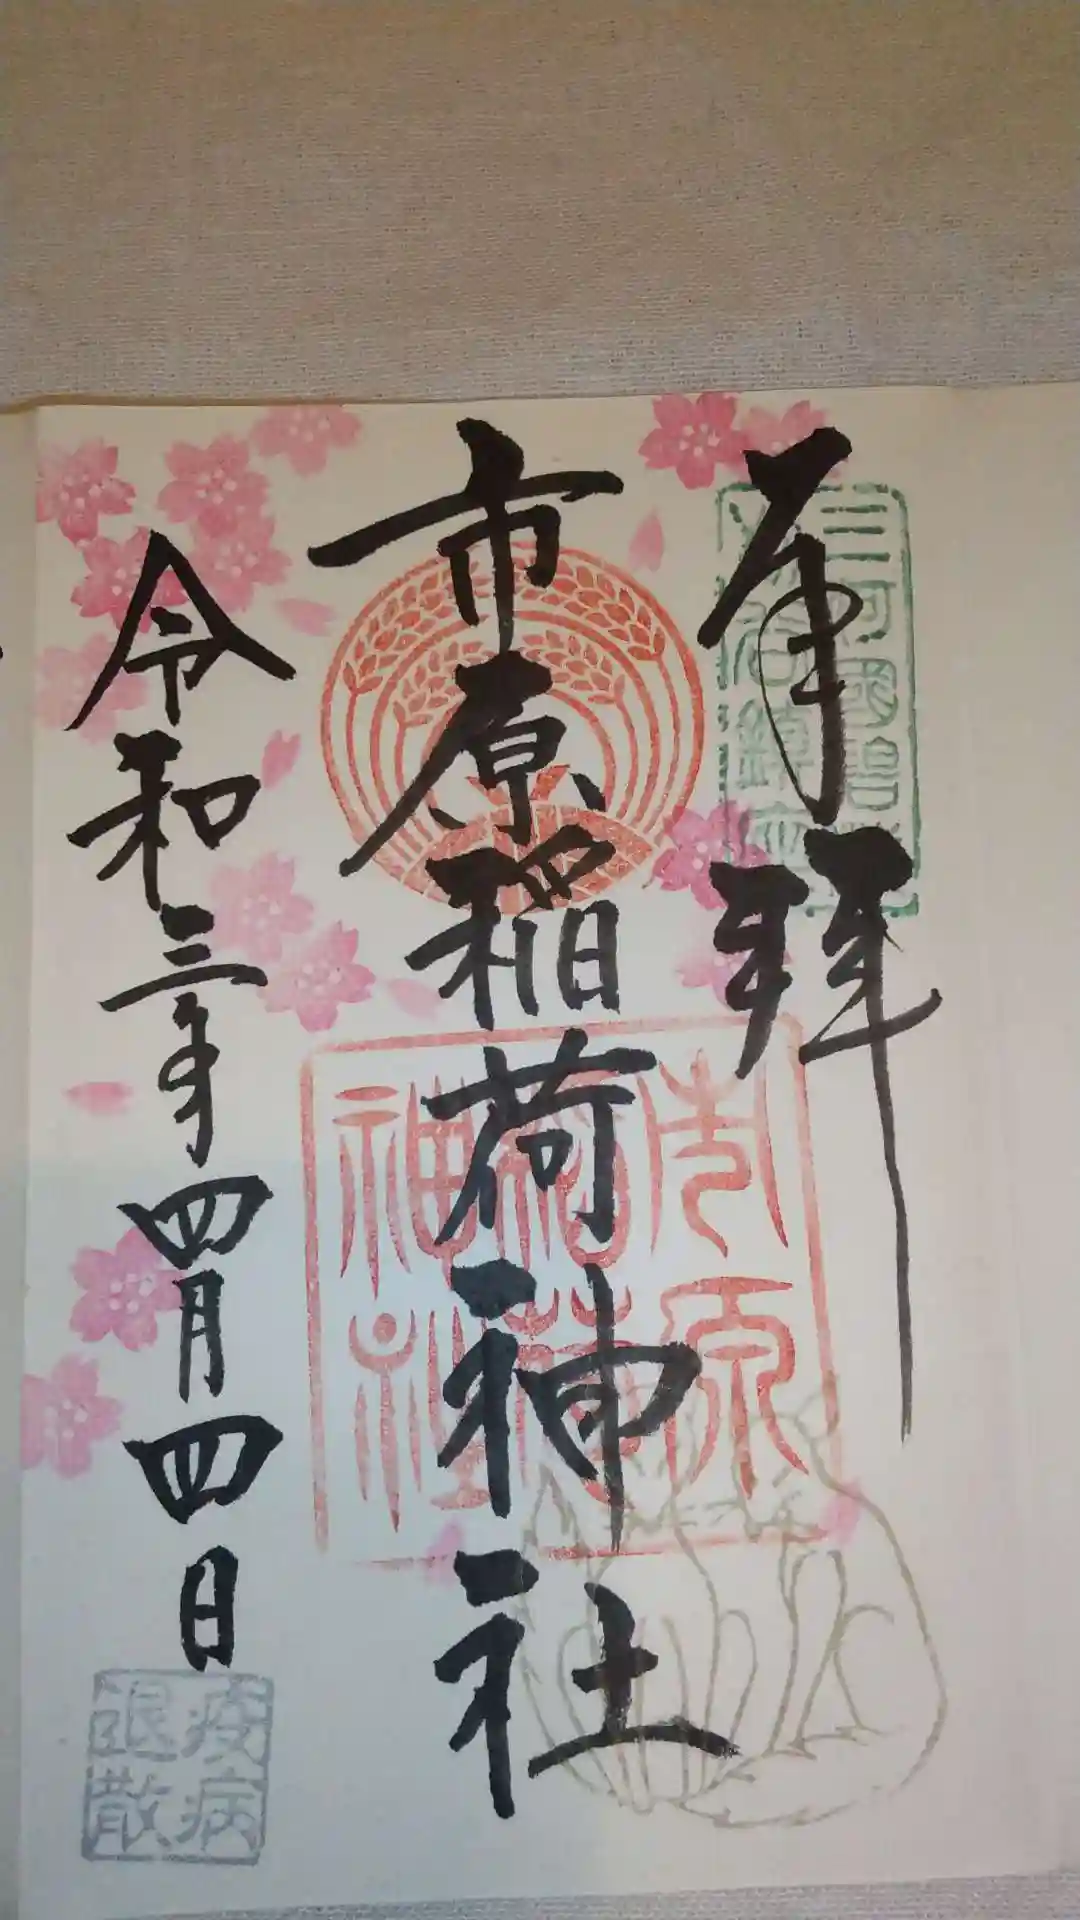 奉拝
三河國碧海
市原稲荷神社
市原
稲荷
神社
令和三年四月四日
疫病
退散